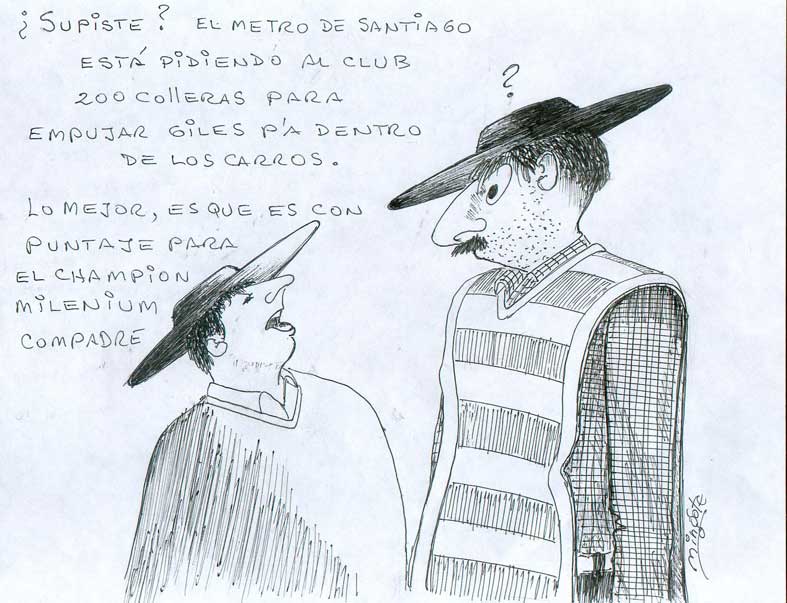 ¿SUPISTE? EL METRO DE SANTIAGO
ESTÁ PIDIENDO AL CLUB
200 COLLERAS PARA
EMPUJAR GILES P'A DENTRO
DE LOS CARROS.
LO MEJOR, ES QUE ES CON
PUNTAJE PARA
EL CHAMPION
MILENIUM
COMPADRE
?